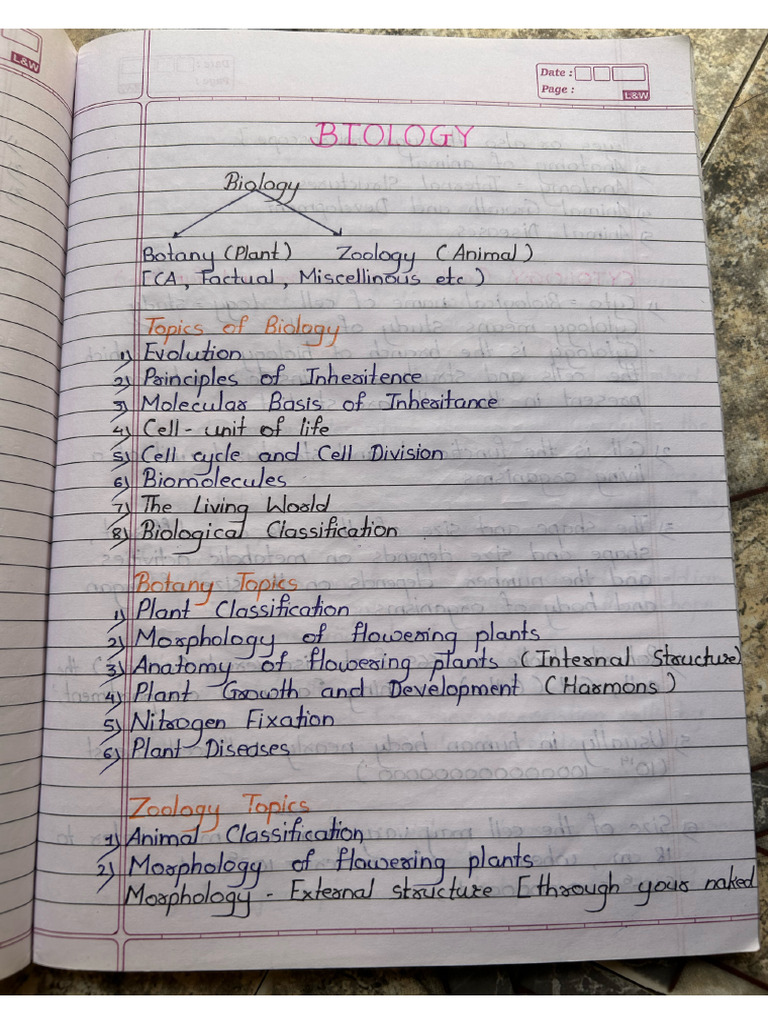 L&W
Date :
Page :
L&W
BIOLOGY
Biology
Botany (Plant) Zoology (Animal)
[CA, Factual, Miscellinous etc)
Topics of Biology
1) Evolution
2) Principles of Inheritence
3) Molecular Basis of Inheritance
4) Cell - unit of life
5) Cell cycle and Cell Division
6) Biomolecules
7) The Living World
8) Biological Classification
Botany Topics
1) Plant Classification
2) Morphology of flowering plants
3) Anatomy of flowering plants (Internal Structure)
4) Plant Growth and Development (Harmons)
5) Nitrogen Fixation
6) Plant Diseases
Zoology Topics
1) Animal Classification
2) Morphology of flowering plants
Morphology - External structure [through your naked